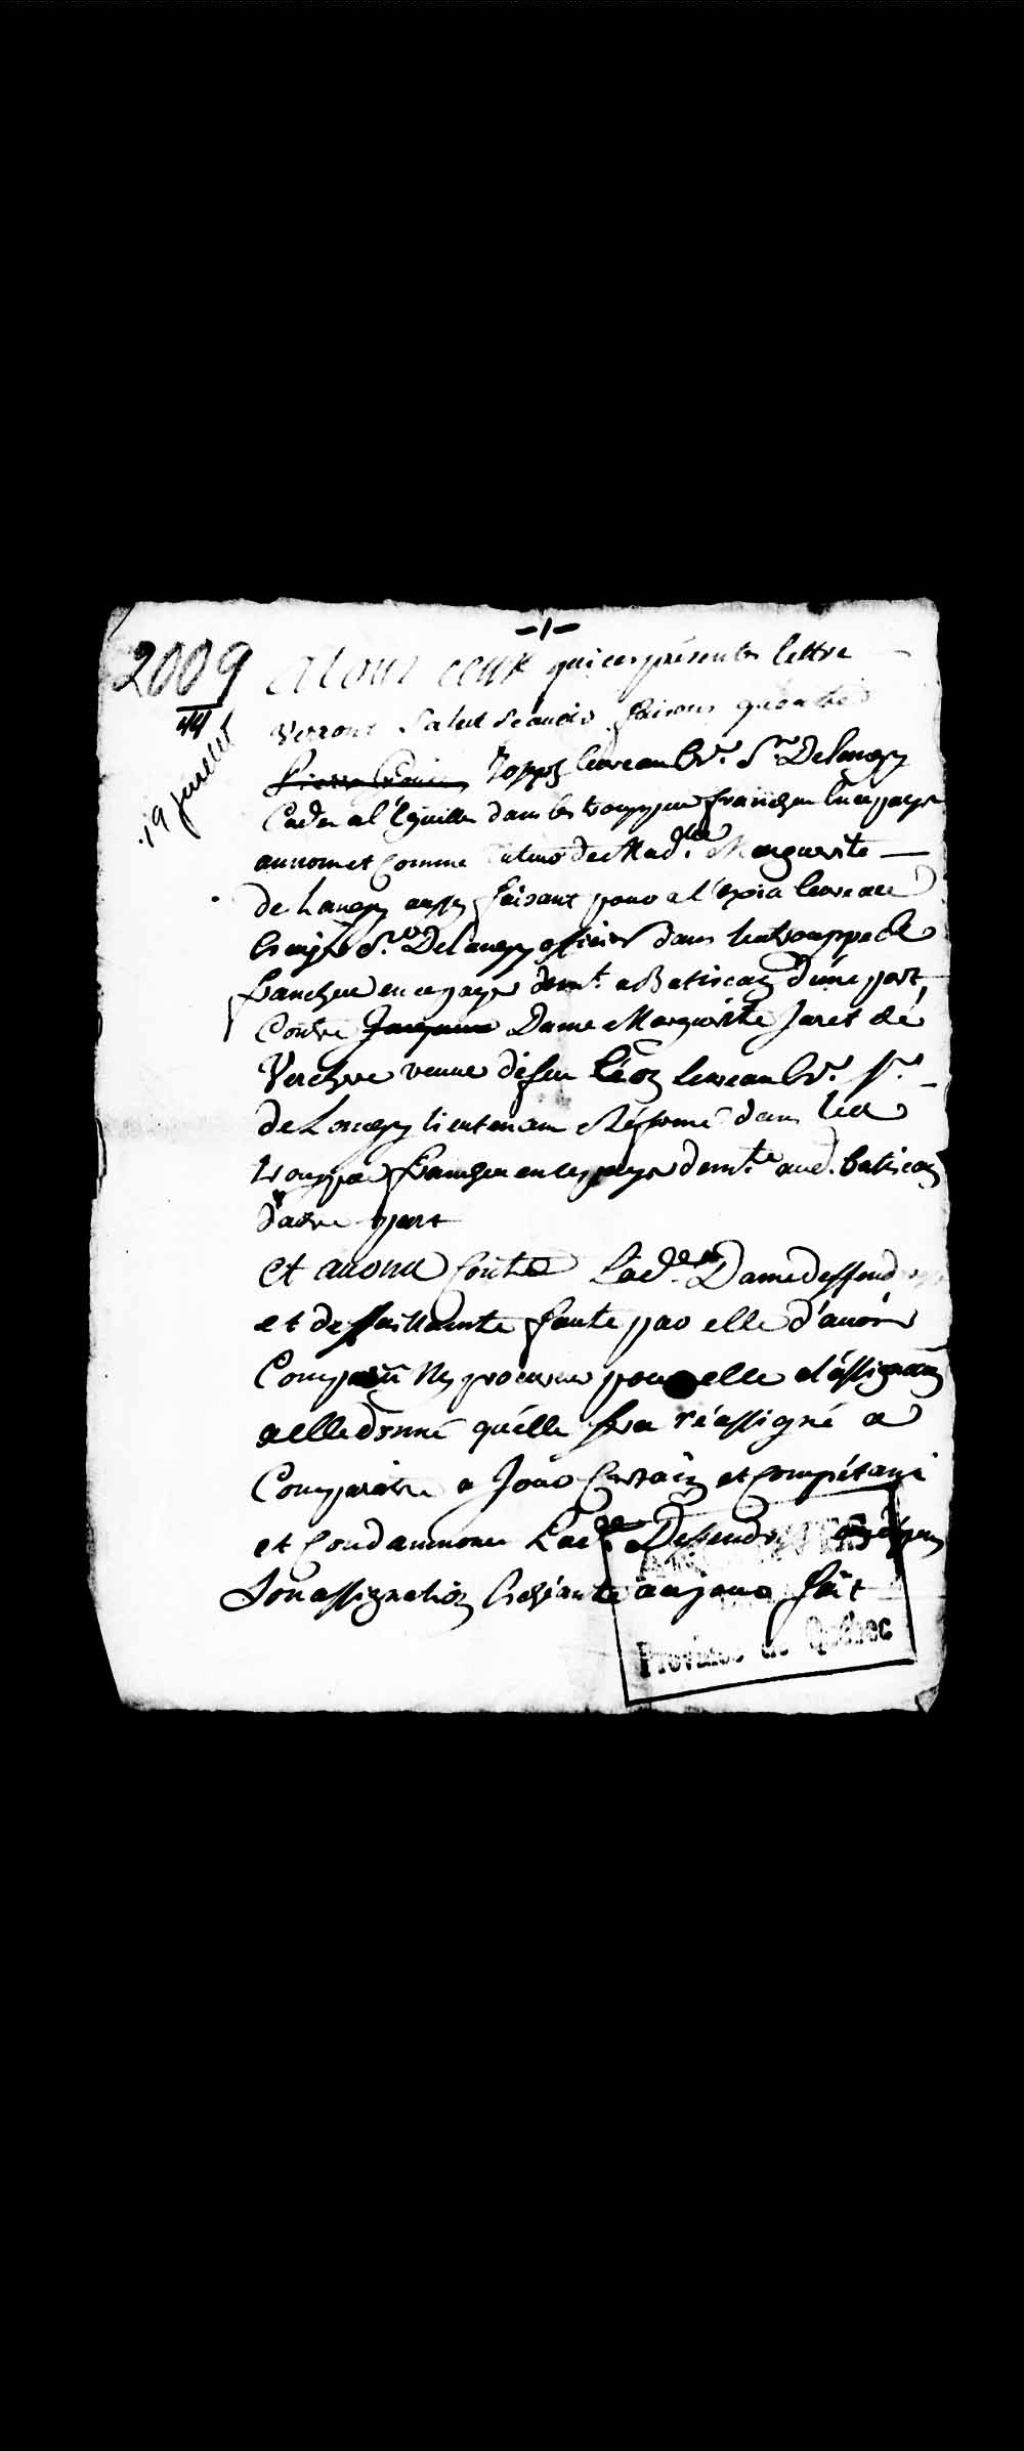 -1-
2009
19 juillet
A tous ceux qui ces présentes lettre
verront Salut Scauoir faisons qu'entre
Joseph leureau Er. Sr. Delangy
Cadet a l'Eguille dans les trouppes francheu En ce pays
au nom et comme tuteur de Mad.lle Marguerite
de Langy aussy faisant pour
Sr. Delangy officier dans les trouppe de
francheu en ce pays demt. a Batiscan d'une part,
Contre Dame Marguerite Jaret dé
Verchere veuue de feu Léon leureau Er. Sr.
de Langy lieutenan Réformé dans les
trouppe francheu en ce pays demte. aud. batiscan
d'autre part
et auons Contre Lad.te Dame deffend
et deffaillante faute par elle d'auoir
Comparu Ny procureur pour elle a l'assignaon
a elle donné qu'elle sera réassigné a
Comparoitre a Jour Certain et Compétant
et Condamnons Lad.te Defendr
Son assignation Echéante au jour fait
Province de Québec